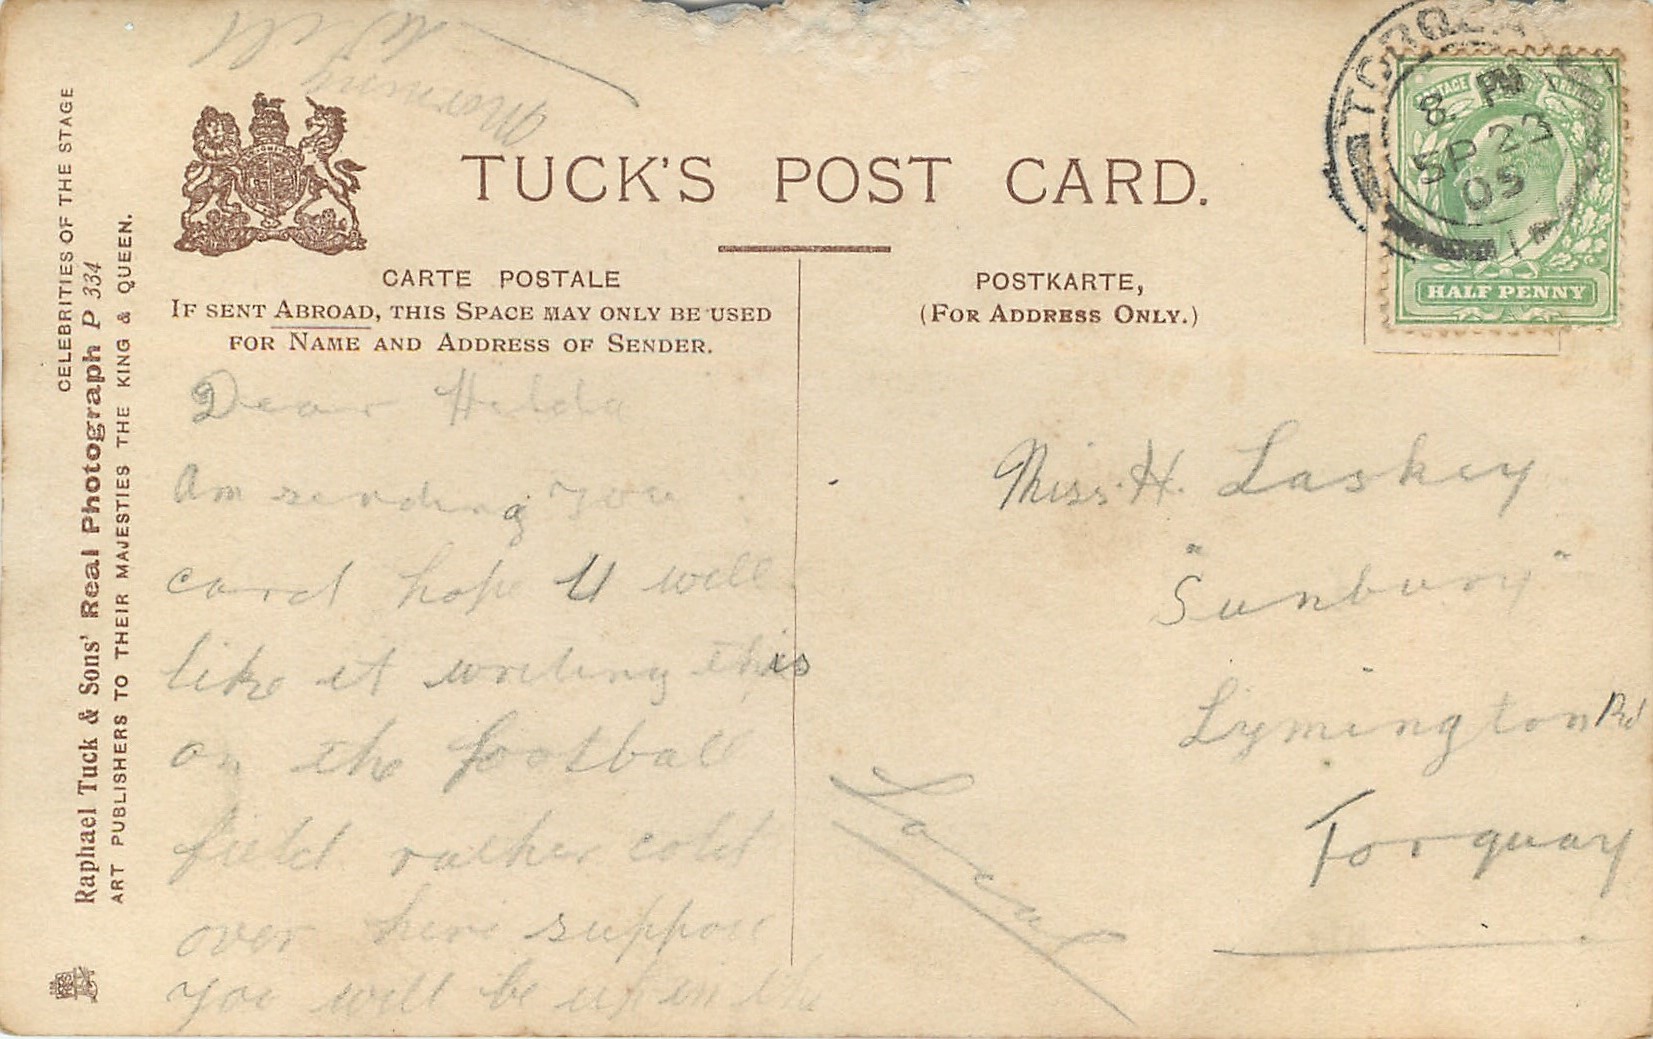 TUCK'S POST CARD.
CARTE POSTALE
IF SENT ABROAD, THIS SPACE MAY ONLY BE USED
FOR NAME AND ADDRESS OF SENDER.
POSTKARTE,
(FOR ADDRESS ONLY.)
CELEBRITIES OF THE STAGE
Raphael Tuck & Sons' Real Photograph P 334
ART PUBLISHERS TO THEIR MAJESTIES THE KING & QUEEN.
8. PM
SP 27
05
1
HALF PENNY
Dear Hilda
Am sending you
card hope U will
like it writing this
on the football
field rather cold
over here suppose
you will be up in the
morning
Will
Miss. H. Laskey
"Sunbury"
Lymington Rd
Torquay